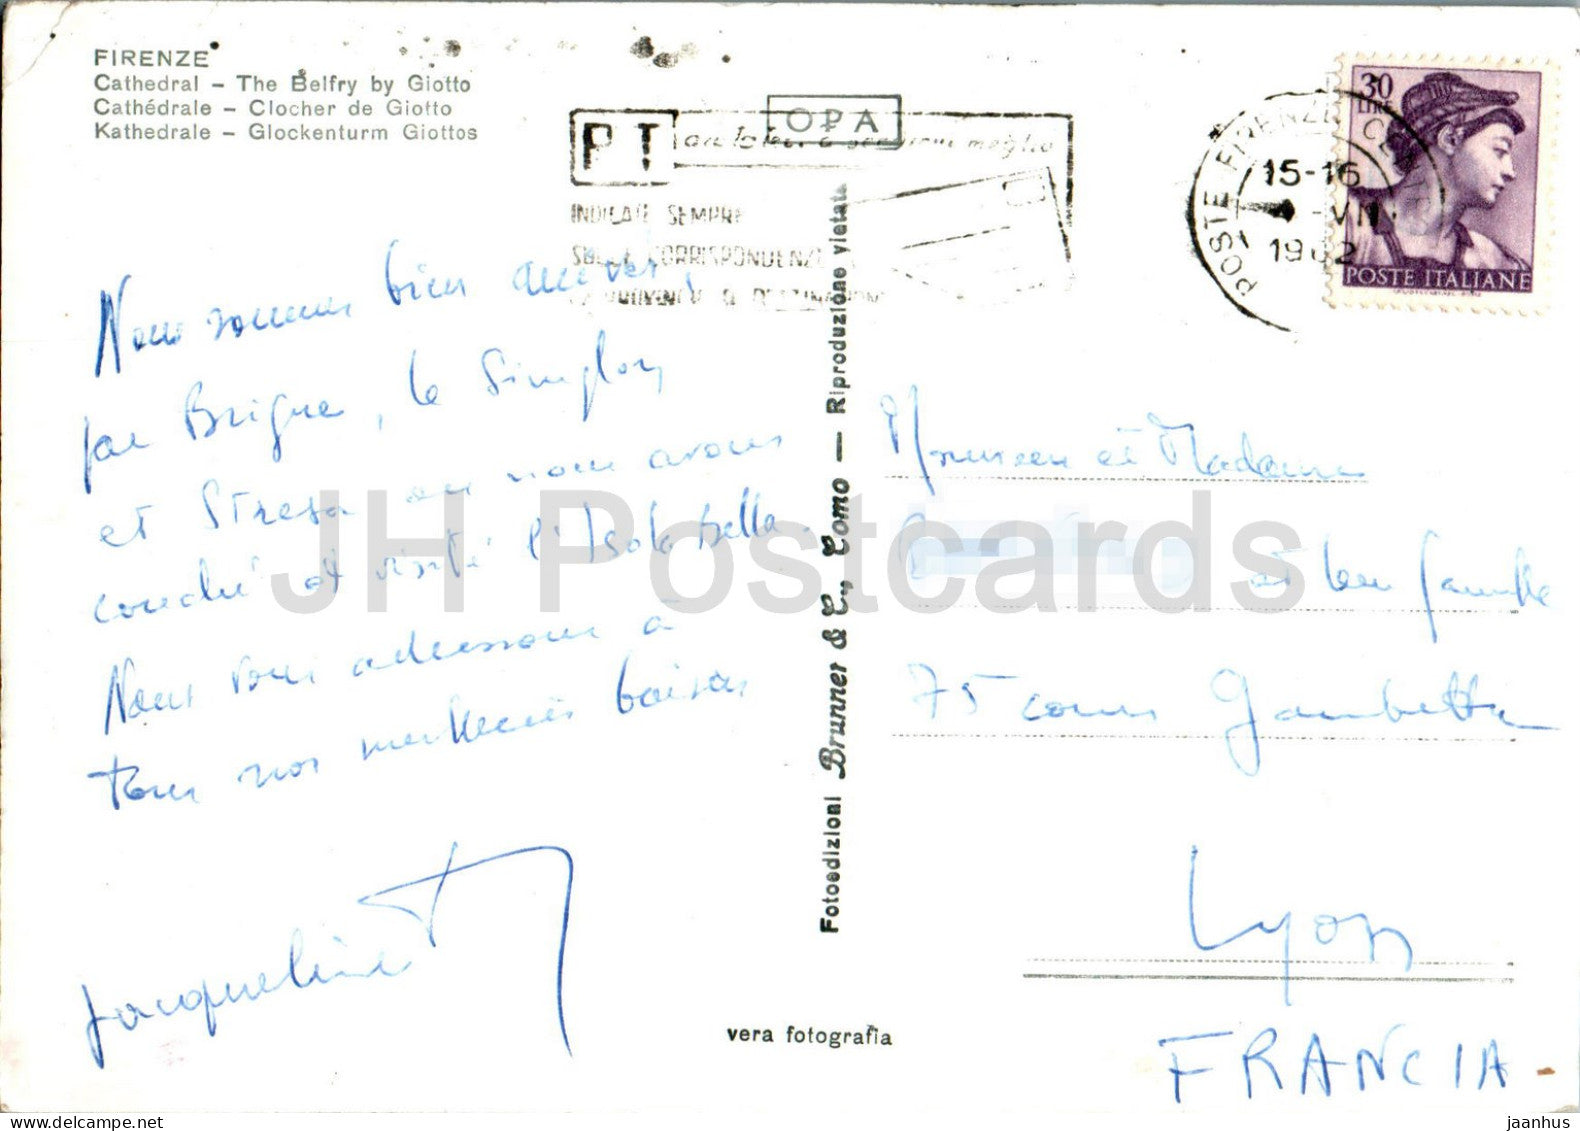 FIRENZE
Cathedral – The Belfry by Giotto
Cathédrale – Clocher de Giotto
Kathedrale – Glockenturm Giottos
OPA
PT
INDICATE SEMPRE
SULLE CORRISPONDENZE
POSTE FIRENZE
15-16
VII
1962
30 LIRE
POSTE ITALIANE
Nous sommes bien arrivés,
par Brigue, le Simplon
et Stresa où nous avons
couché et visité l'Isola bella.
Nous vous adressons à
tous nos meilleurs baisers
Jacqueline
Fotoedizioni Brunner & C., Como — Riproduzione vietata
vera fotografia
Monsieur et Madame
et leur famille
75 cours Gambetta
Lyon
FRANCIA -
JH Postcards
jaanhus
www.delcampe.net